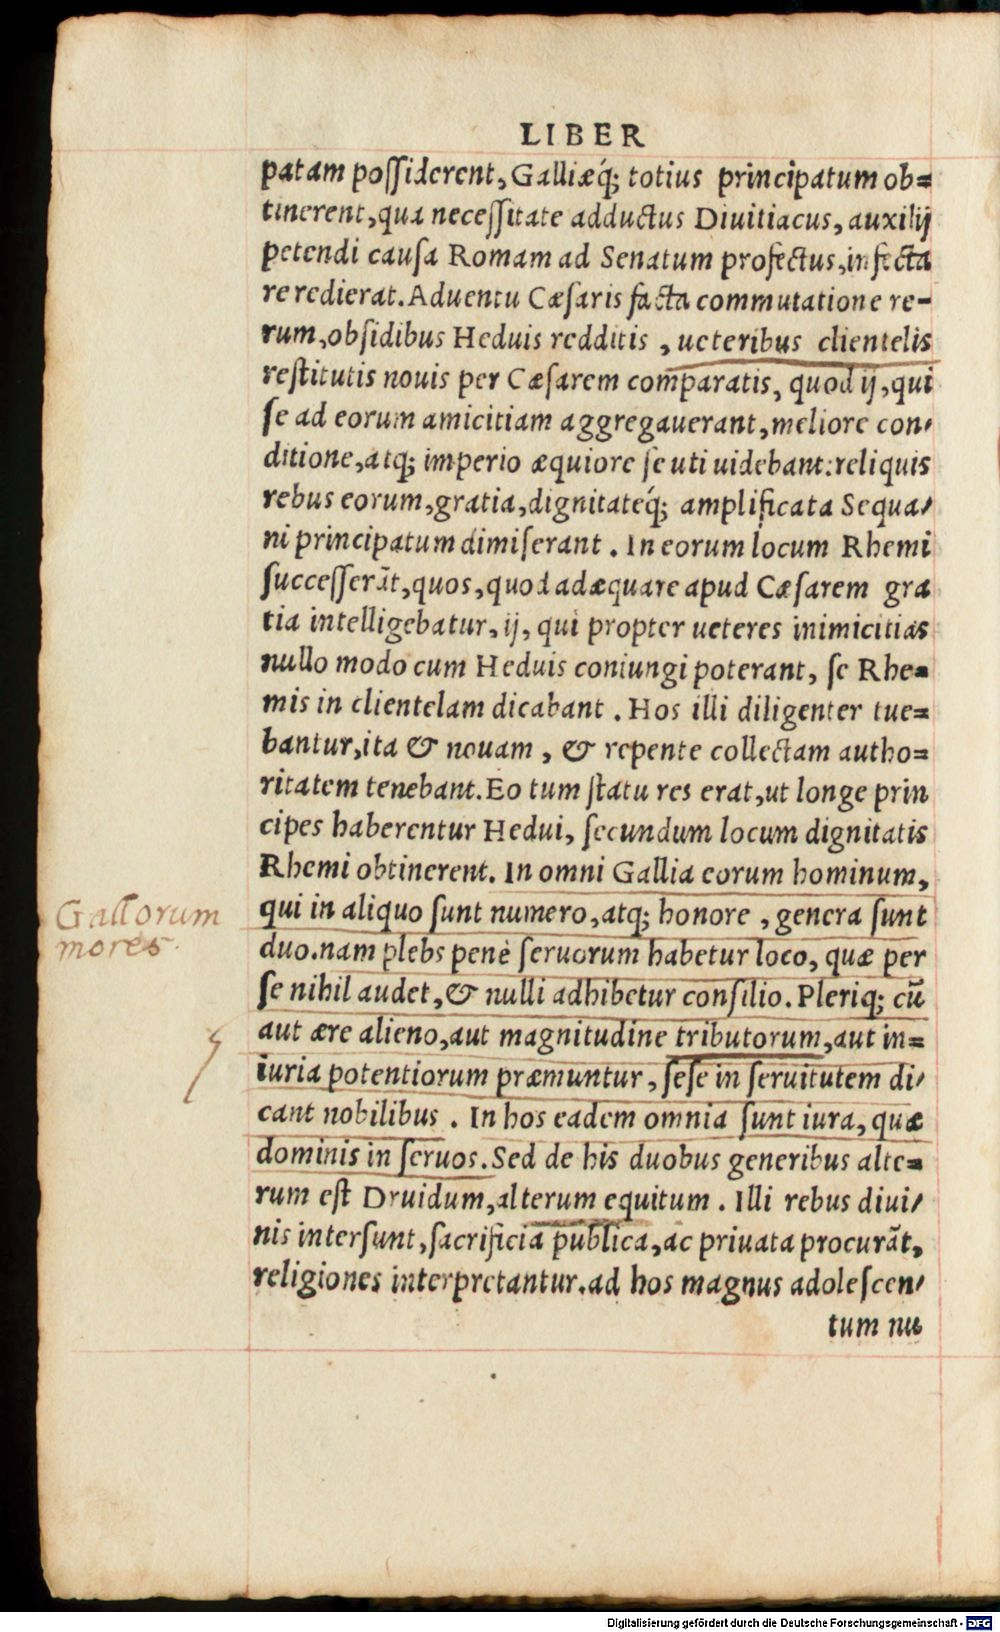 LIBER
patam poſſiderent, Galliæq́; totius principatum ob=
tinerent, qua neceſſitate adductus Diuitiacus, auxilij
petendi cauſa Romam ad Senatum profectus, infecta
re redierat. Aduentu Cæſaris facta commutatione re-
rum, obſidibus Heduis redditis, ueteribus clientelis
reſtitutis nouis per Cæſarem comparatis, quod ij, qui
ſe ad eorum amicitiam aggregauerant, meliore con-
ditione, atq; imperio æquiore ſe uti uidebant: reliquis
rebus eorum, gratia, dignitateq́; amplificata Sequa-
ni principatum dimiſerant. In eorum locum Rhemi
ſucceſſerāt, quos, quod adæquare apud Cæſarem gra
tia intelligebatur, ij, qui propter ueteres inimicitias
nullo modo cum Heduis coniungi poterant, ſe Rhe=
mis in clientelam dicabant. Hos illi diligenter tue=
bantur, ita & nouam, & repente collectam autho=
ritatem tenebant. Eo tum ſtatu res erat, ut longe prin
cipes haberentur Hedui, ſecundum locum dignitatis
Rhemi obtinerent. In omni Gallia eorum hominum,
Gallorum
mores.
qui in aliquo ſunt numero, atq; honore, genera ſunt
duo. nam plebs penè ſeruorum habetur loco, quæ per
ſe nihil audet, & nulli adhibetur conſilio. Pleriq; cū
aut ære alieno, aut magnitudine tributorum, aut in=
iuria potentiorum præmuntur, ſeſe in ſeruitutem di-
cant nobilibus. In hos eadem omnia ſunt iura, quæ
dominis in ſeruos. Sed de his duobus generibus alte=
rum eſt Druidum, alterum equitum. Illi rebus diui-
nis interſunt, ſacrificia publica, ac priuata procurāt,
religiones interpretantur. ad hos magnus adoleſcen-
tum nu
Digitalisierung gefördert durch die Deutsche Forschungsgemeinschaft - DFG